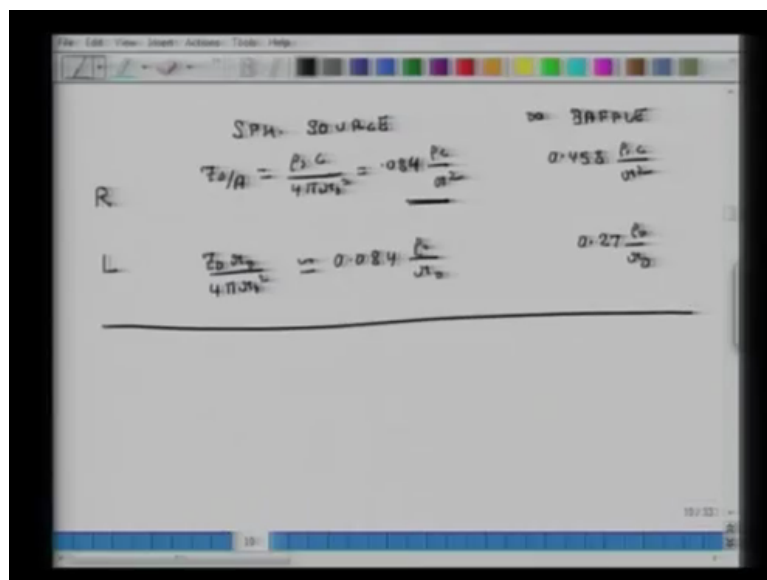 File Edit View Insert Actions Tools Help
SPH. SOURCE ∞ BAFFLE
R Z₀/A = ρ₀c / 4πr₀² = .084 ρ₀c / r² 0.458 ρ₀c / r²
L Z₀r₀ / 4πr₀² ≃ 0.084 ρ₀ / r₀ 0.27 ρ₀ / r₀